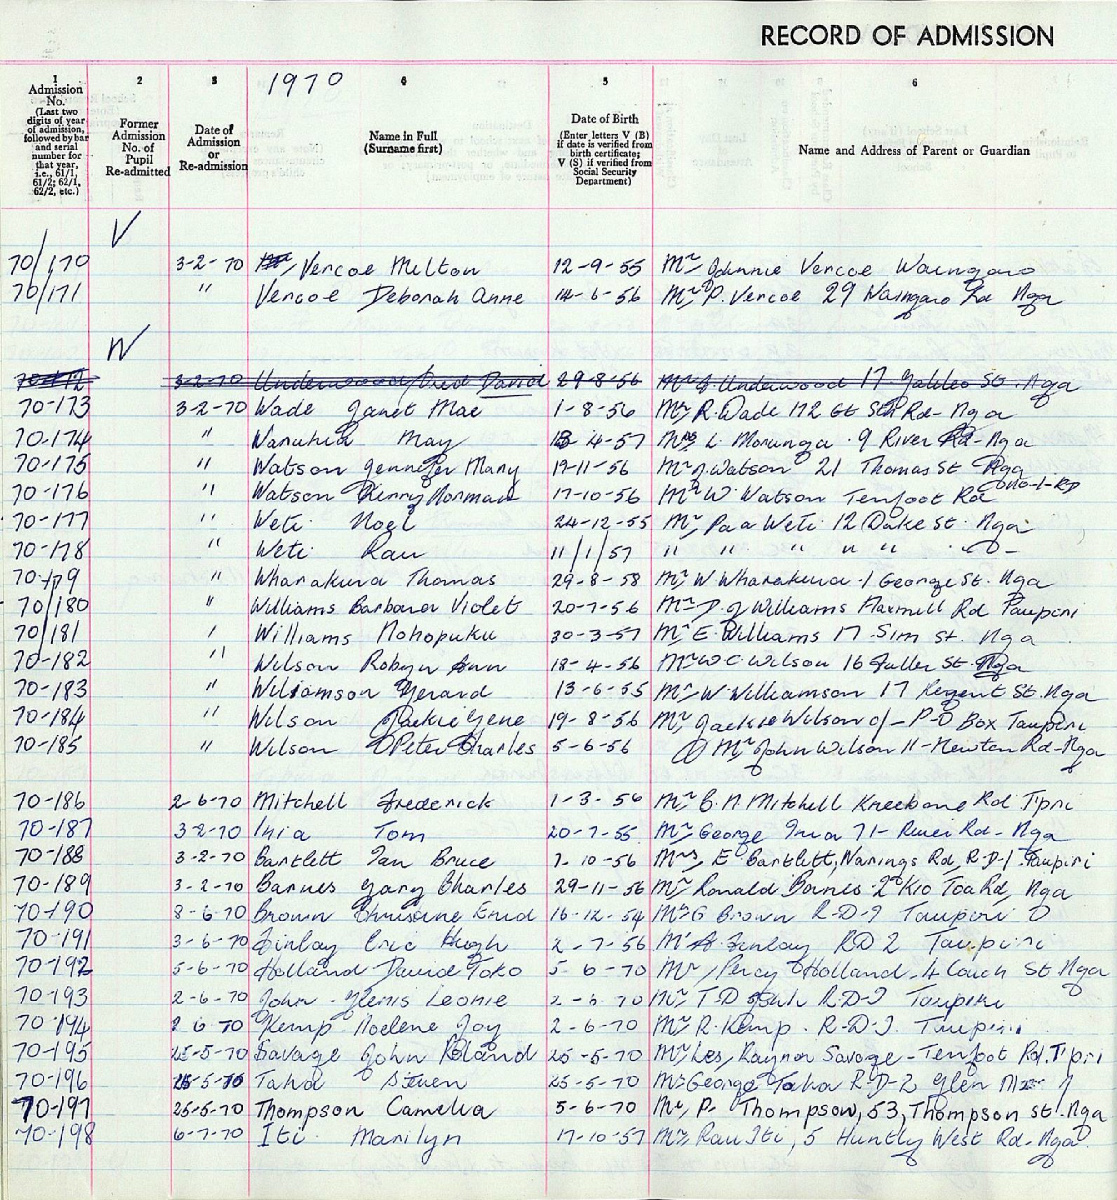 RECORD OF ADMISSION
1 2 3 1970 4 5 6
Admission No. (Last two digits of year of admission, followed by bar and serial number for that year, i.e., 61/1, 61/2; 62/1, 62/2, etc.)
Former Admission No. of Pupil Re-admitted
Date of Admission or Re-admission
Name in Full (Surname first)
Date of Birth (Enter letters V (B) if date is verified from birth certificate; V (S) if verified from Social Security Department)
Name and Address of Parent or Guardian
V
70/170 3-2-70 Vercoe Milton 12-9-55 Mr Johnnie Vercoe Waingaro
70/171 " Vercoe Deborah Anne 14-6-56 Mr P. Vercoe 29 Waingaro Rd Nga
W
70-172 3-2-70 Underwood Fred David 29-8-56 Mr J Underwood 17 Galileo St. Nga
70-173 3-2-70 Wade Janet Mae 1-8-56 Mr R. Wade 172 Gt Sth Rd- Nga
70-174 " May 4-57 Mrs L. Morunga 9 River Rd-Nga
70-175 " Watson Jennifer Mary 19-11-56 Mr J. Watson 21 Thomas St Nga
70-176 " Watson Kerry Norman 17-10-56 Mr W. Watson Tenfoot Rd
70-177 " Weti Noel 24-12-55 Mr Paa Weti 12 Duke St. Nga
70-178 " Weti Rau 11/1/57 " " " " " -do-
70-179 " Wharakura Thomas 29-8-58 Mr W Wharakura 1 George St. Nga
70/180 " Williams Barbara Violet 20-7-56 Mr D. J Williams Flaxmill Rd Taupiri
70/181 " Williams Nohopuku 30-3-57 Mr E. Williams 17 Sim St. Nga
70-182 " Wilson Robyn Ann 18-4-56 Mr W C Wilson 16 Fuller St. Nga
70-183 " Williamson Gerard 13-6-55 Mr W Williamson 17 Regent St. Nga
70-184 " Wilson Jackie Gene 19-8-56 Mr Jackie Wilson c/- P-O Box Taupiri
70-185 " Wilson Peter Charles 5-6-56 Mr John Wilson 11-Newton Rd-Nga
70-186 2-6-70 Mitchell Frederick 1-3-56 Mr B. N Mitchell Kreebone Rd Tpri
70-187 3-2-70 Inia Tom 20-7-55 Mr George Inia 71- River Rd- Nga
70-188 3-2-70 Bartlett Ian Bruce 7-10-56 Mrs E Bartlett, Rd, R-D-1 Taupiri
70-189 3-2-70 Barnes Gary Charles 29-11-56 Mr Ronald Barnes Rd, Nga
70-190 8-6-70 Brown Christine Enid 16-12-54 Mr G Brown R-D-2 Taupiri
70-191 3-6-70 Finlay Eric Hugh 2-7-56 Mr A. Finlay RD 2 Taupiri
70-192 5-6-70 Holland David Toko 5-6-70 Mr Percy Holland 4 Couch St Nga
70-193 2-6-70 John Glenis Leonie 2-6-70 Mr T D John R-D-2 Taupiri
70-194 2 6 70 Kemp Noelene Joy 2-6-70 Mr R. Kemp. R-D-2. Taupiri
70-195 25-5-70 Savage John Roland 25-5-70 Mr Les Raynor Savage-Tenfoot Rd. Tpri
70-196 25-5-70 Taka Steven 25-5-70 Mr George Taka R-D-2 Glen
70-197 25-5-70 Thompson Camelia 5-6-70 Mr P. Thompson, 53, Thompson St. Nga
70-198 6-7-70 Iti Marilyn 17-10-57 Mr Rau Iti, 5 Huntly West Rd-Nga